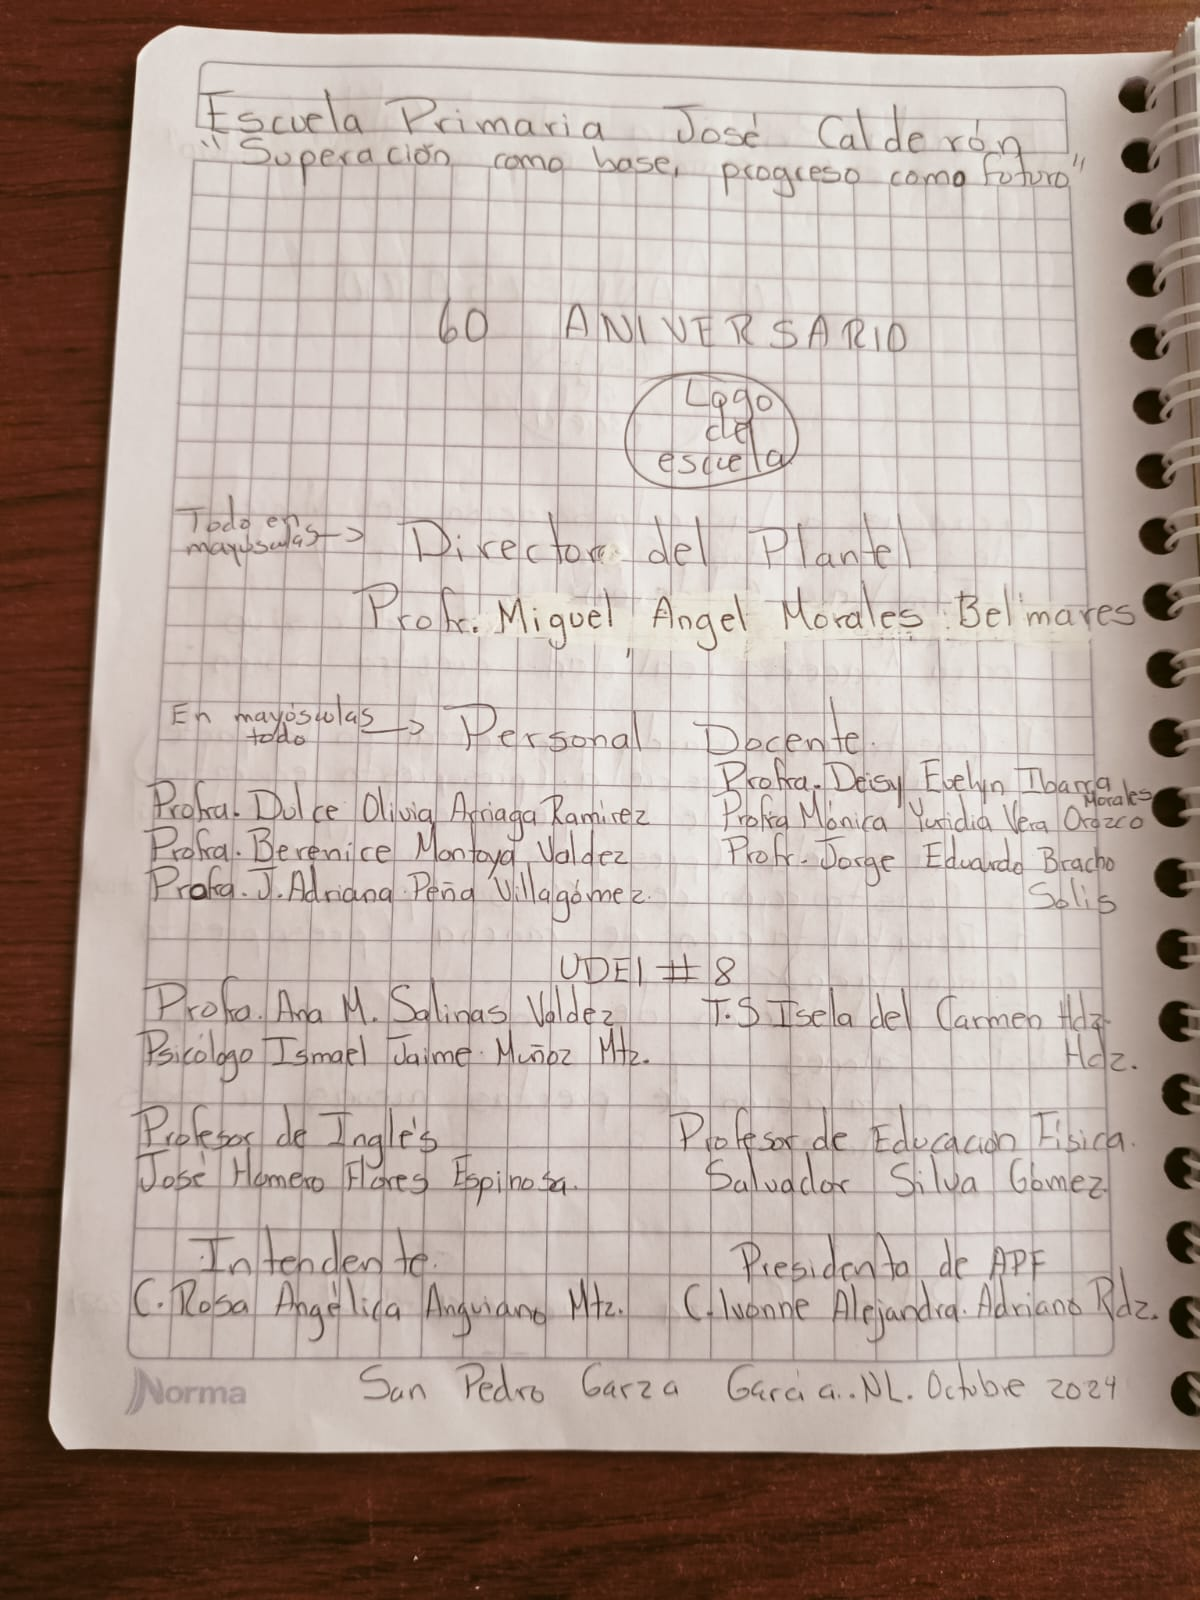 Escuela Primaria José Calderón
"Superación como base, progreso como futuro"
60 ANIVERSARIO
Logo
de
escuela
Todo en
mayúsculas -> Director del Plantel
Profr. Miguel Angel Morales Belmares
En mayúsculas
todo -> Personal Docente.
Profra. Deisy Evelyn Ibarra
Morales
Profra. Dulce Olivia Arriaga Ramirez
Profra Mónica Yuridia Vera Orozco
Profra. Berenice Montoya Valdez
Profr. Jorge Eduardo Bracho
Solis
Profra. J. Adriana Peña Villagómez.
UDEI # 8
Profra. Ana M. Salinas Valdez
T.S Isela del Carmen Hdz.
Hdz.
Psicólogo Ismael Jaime Muñoz Mtz.
Profesor de Inglés
José Homero Flores Espinosa.
Profesor de Educación Física.
Salvador Silva Gómez
Intendente.
C. Rosa Angélica Anguiano Mtz.
Presidenta de APF
C. Ivonne Alejandra. Adriano Rdz.
Norma
San Pedro Garza Garcia. NL. Octubre 2024